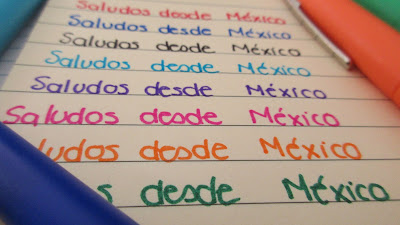 Saludos desde México
Saludos desde México
Saludos desde México
Saludos desde México
Saludos desde México
Saludos desde México
ludos desde México
s desde México